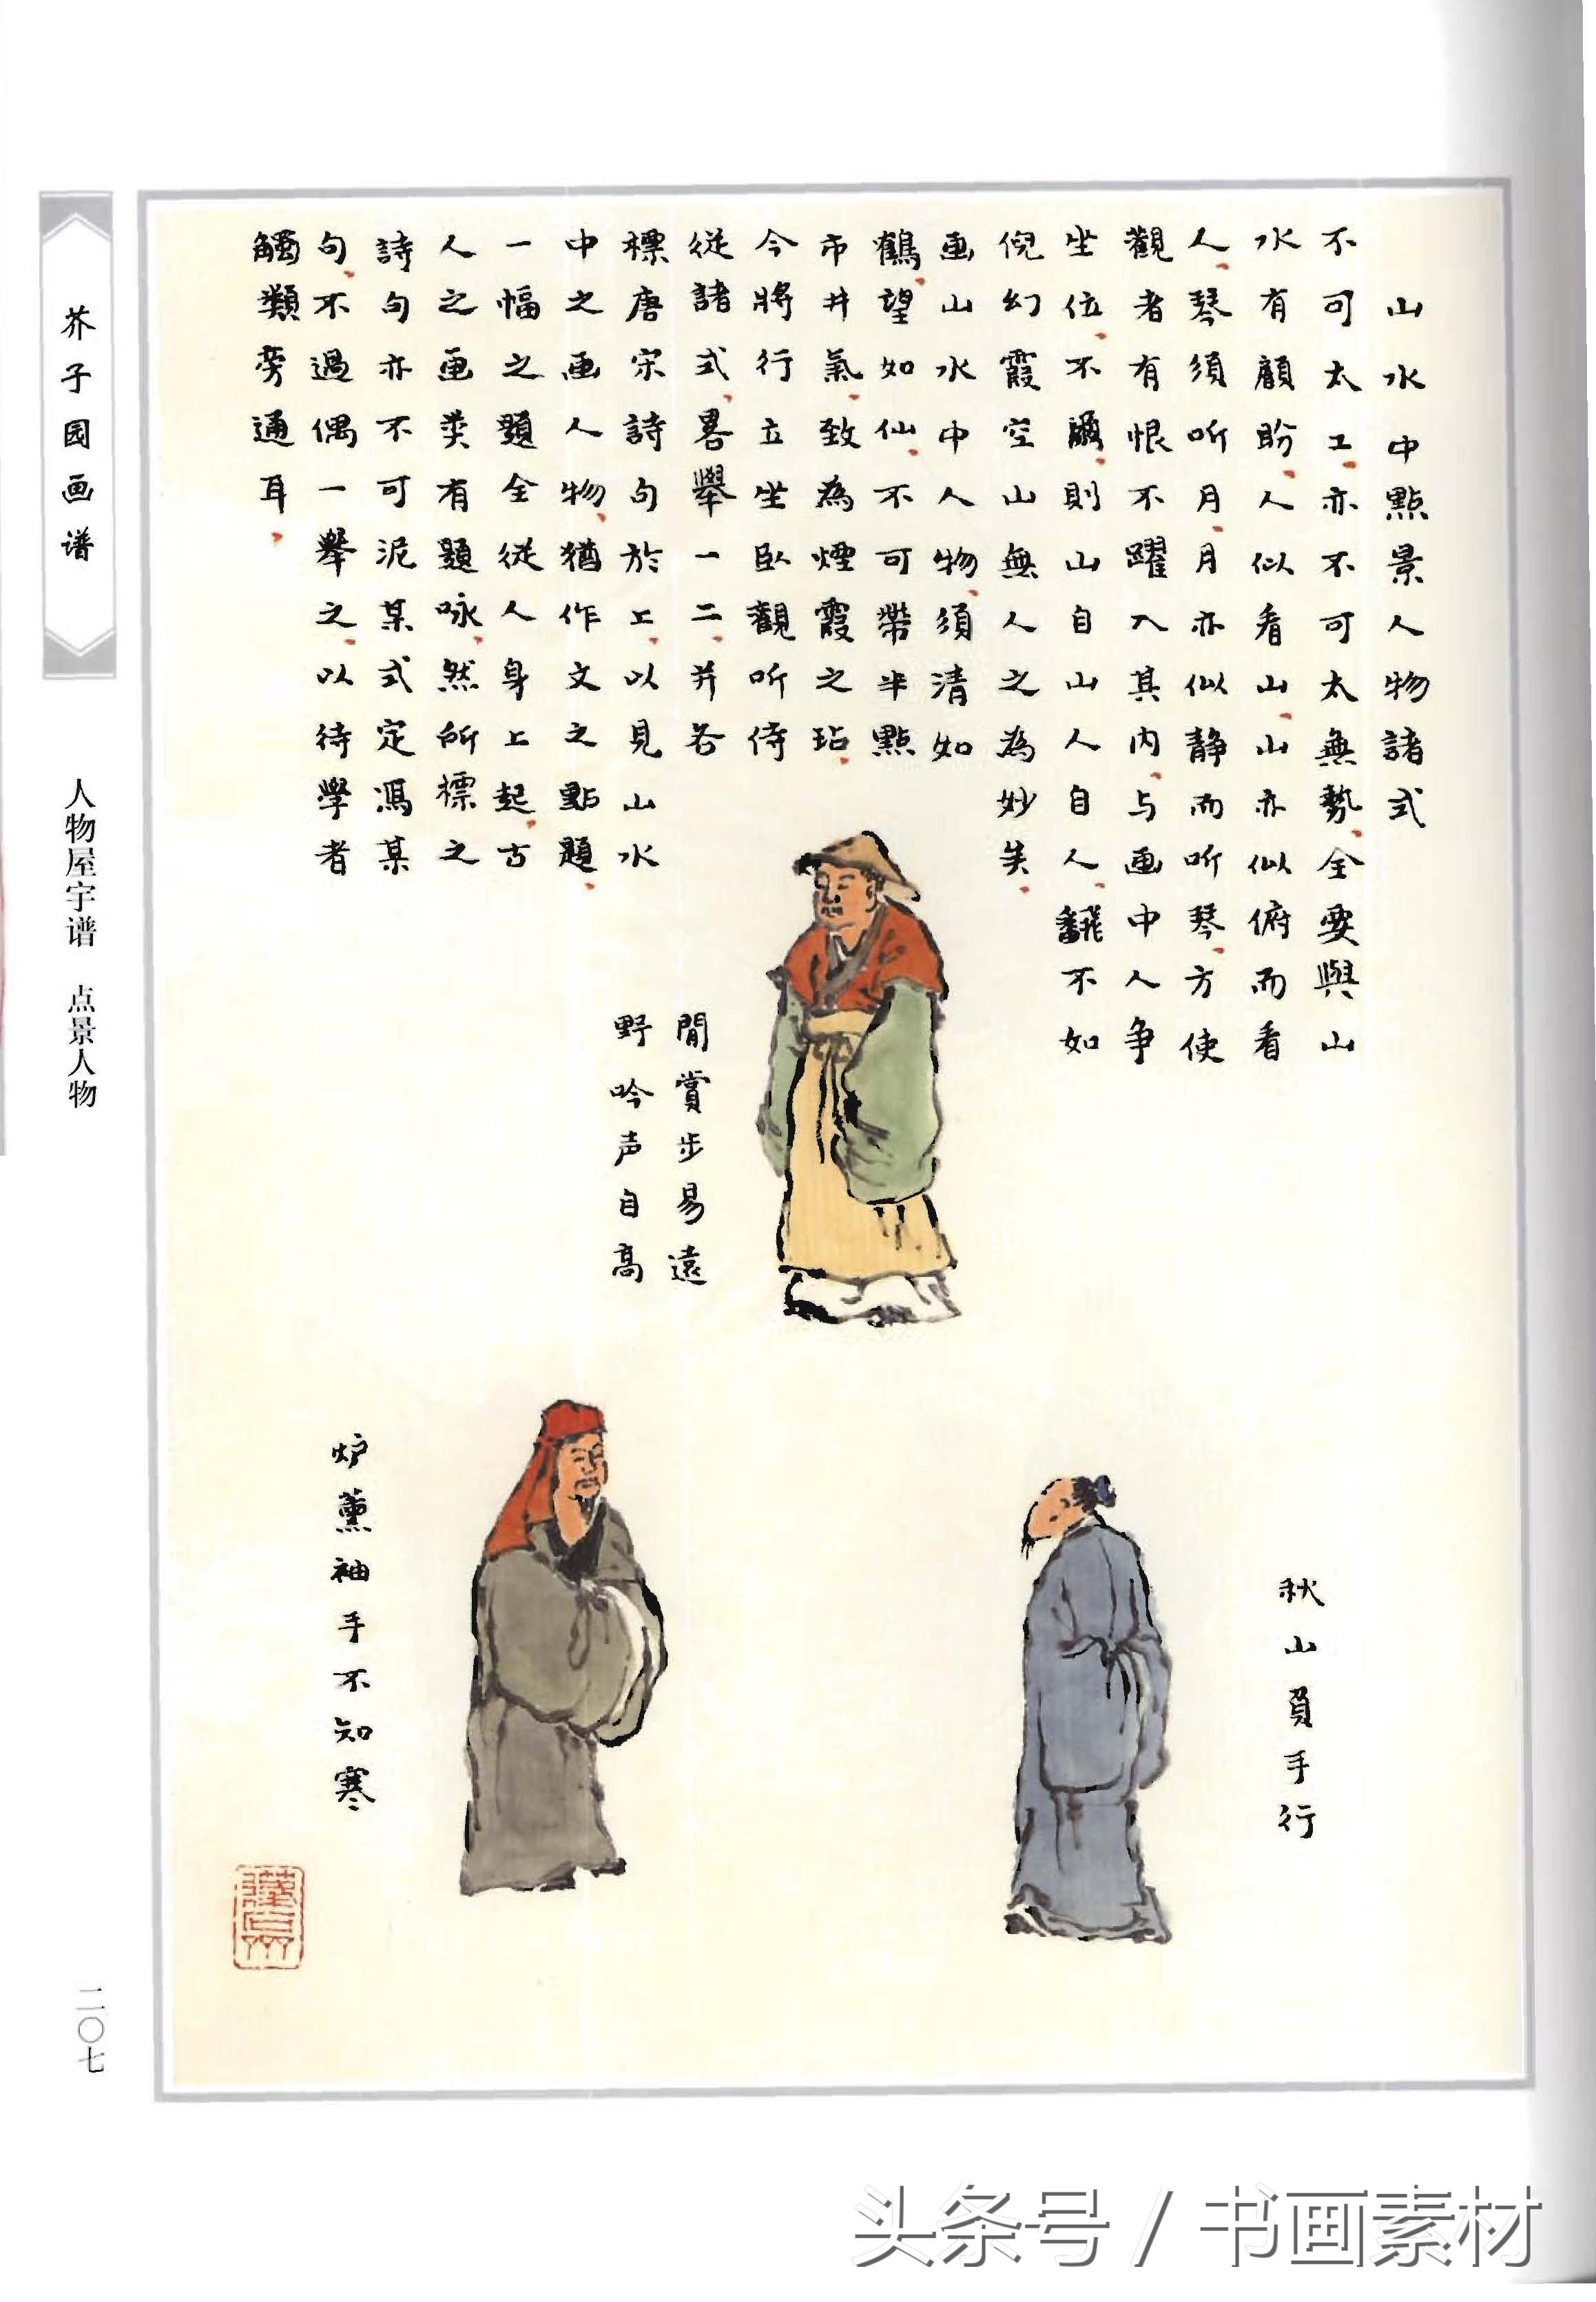 山水中點景人物諸式
不可太工亦不可太無勢全要與山
水有顧盼人似看山山亦似俯而看
人琴須听月月亦似静而听琴方使
觀者有恨不躍入其内与画中人争
坐位不尔則山自山人自人翻不如
倪幻霞空山無人之為妙矣
画山水中人物須清如
鶴望如仙不可帶半點
市井氣致為煙霞之玷
今將行立坐臥觀听侍
從諸式畧舉一二并各
標唐宋詩句於上以見山水
中之画人物猶作文之點題
一幅之題全從人身上起古
人之画类有題咏然所標之
詩句亦不可泥某式定馮某
句不過偶一舉之以待學者
觸類旁通耳
閒賞步易遠
野吟声自高
秋山負手行
炉薰袖手不知寒
芥子园画谱
人物屋宇谱 点景人物
二〇七
头条号 / 书画素材